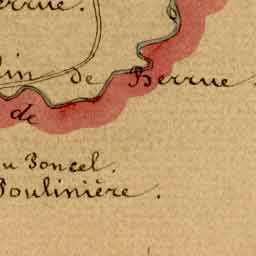 errue.
lin de Berrue
de
u Poncel.
Poulinière.